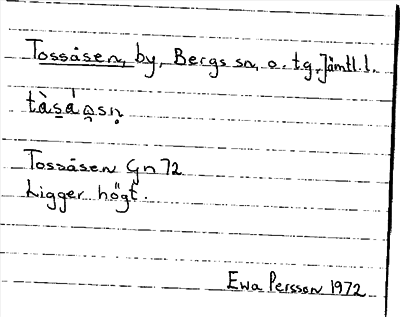 Tossåsen, by, Bergs sn, o. t.g. Jämtl. l.
Tossåsen Gn 72
Ligger högt.
Ewa Persson 1972